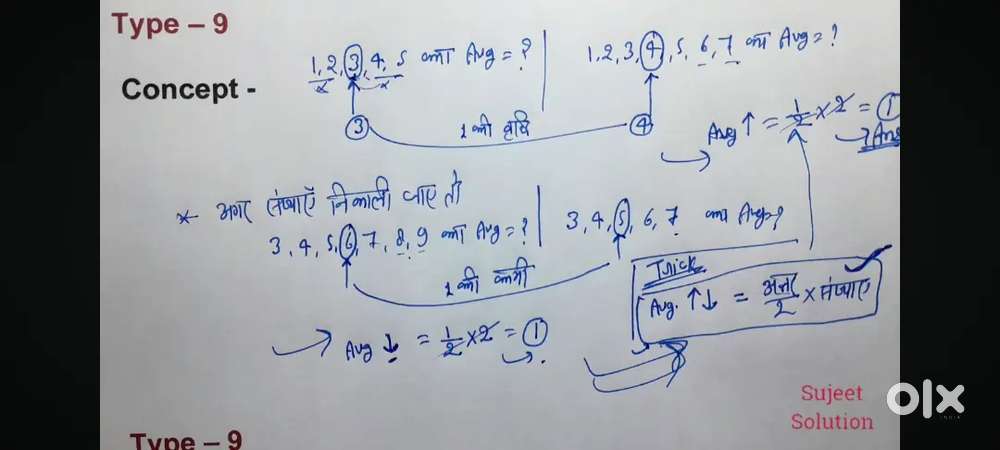 Type – 9
Concept -
1, 2, 3, 4, 5 का Avg = ?
1, 2, 3, 4, 5, 6, 7 का Avg = ?
3 1 की वृद्धि 4
Avg ↑ = 1/2 × 2 = 1
Ans
* अगर संख्याएँ निकाली जाए तो
3, 4, 5, 6, 7, 8, 9 का Avg = ?
3, 4, 5, 6, 7 का Avg = ?
1 की कमी
Trick
Avg. ↑↓ = अन्तर/2 × संख्याएँ
Avg ↓ = 1/2 × 2 = 1
Sujeet
Solution
olx
INDIA
Type – 9